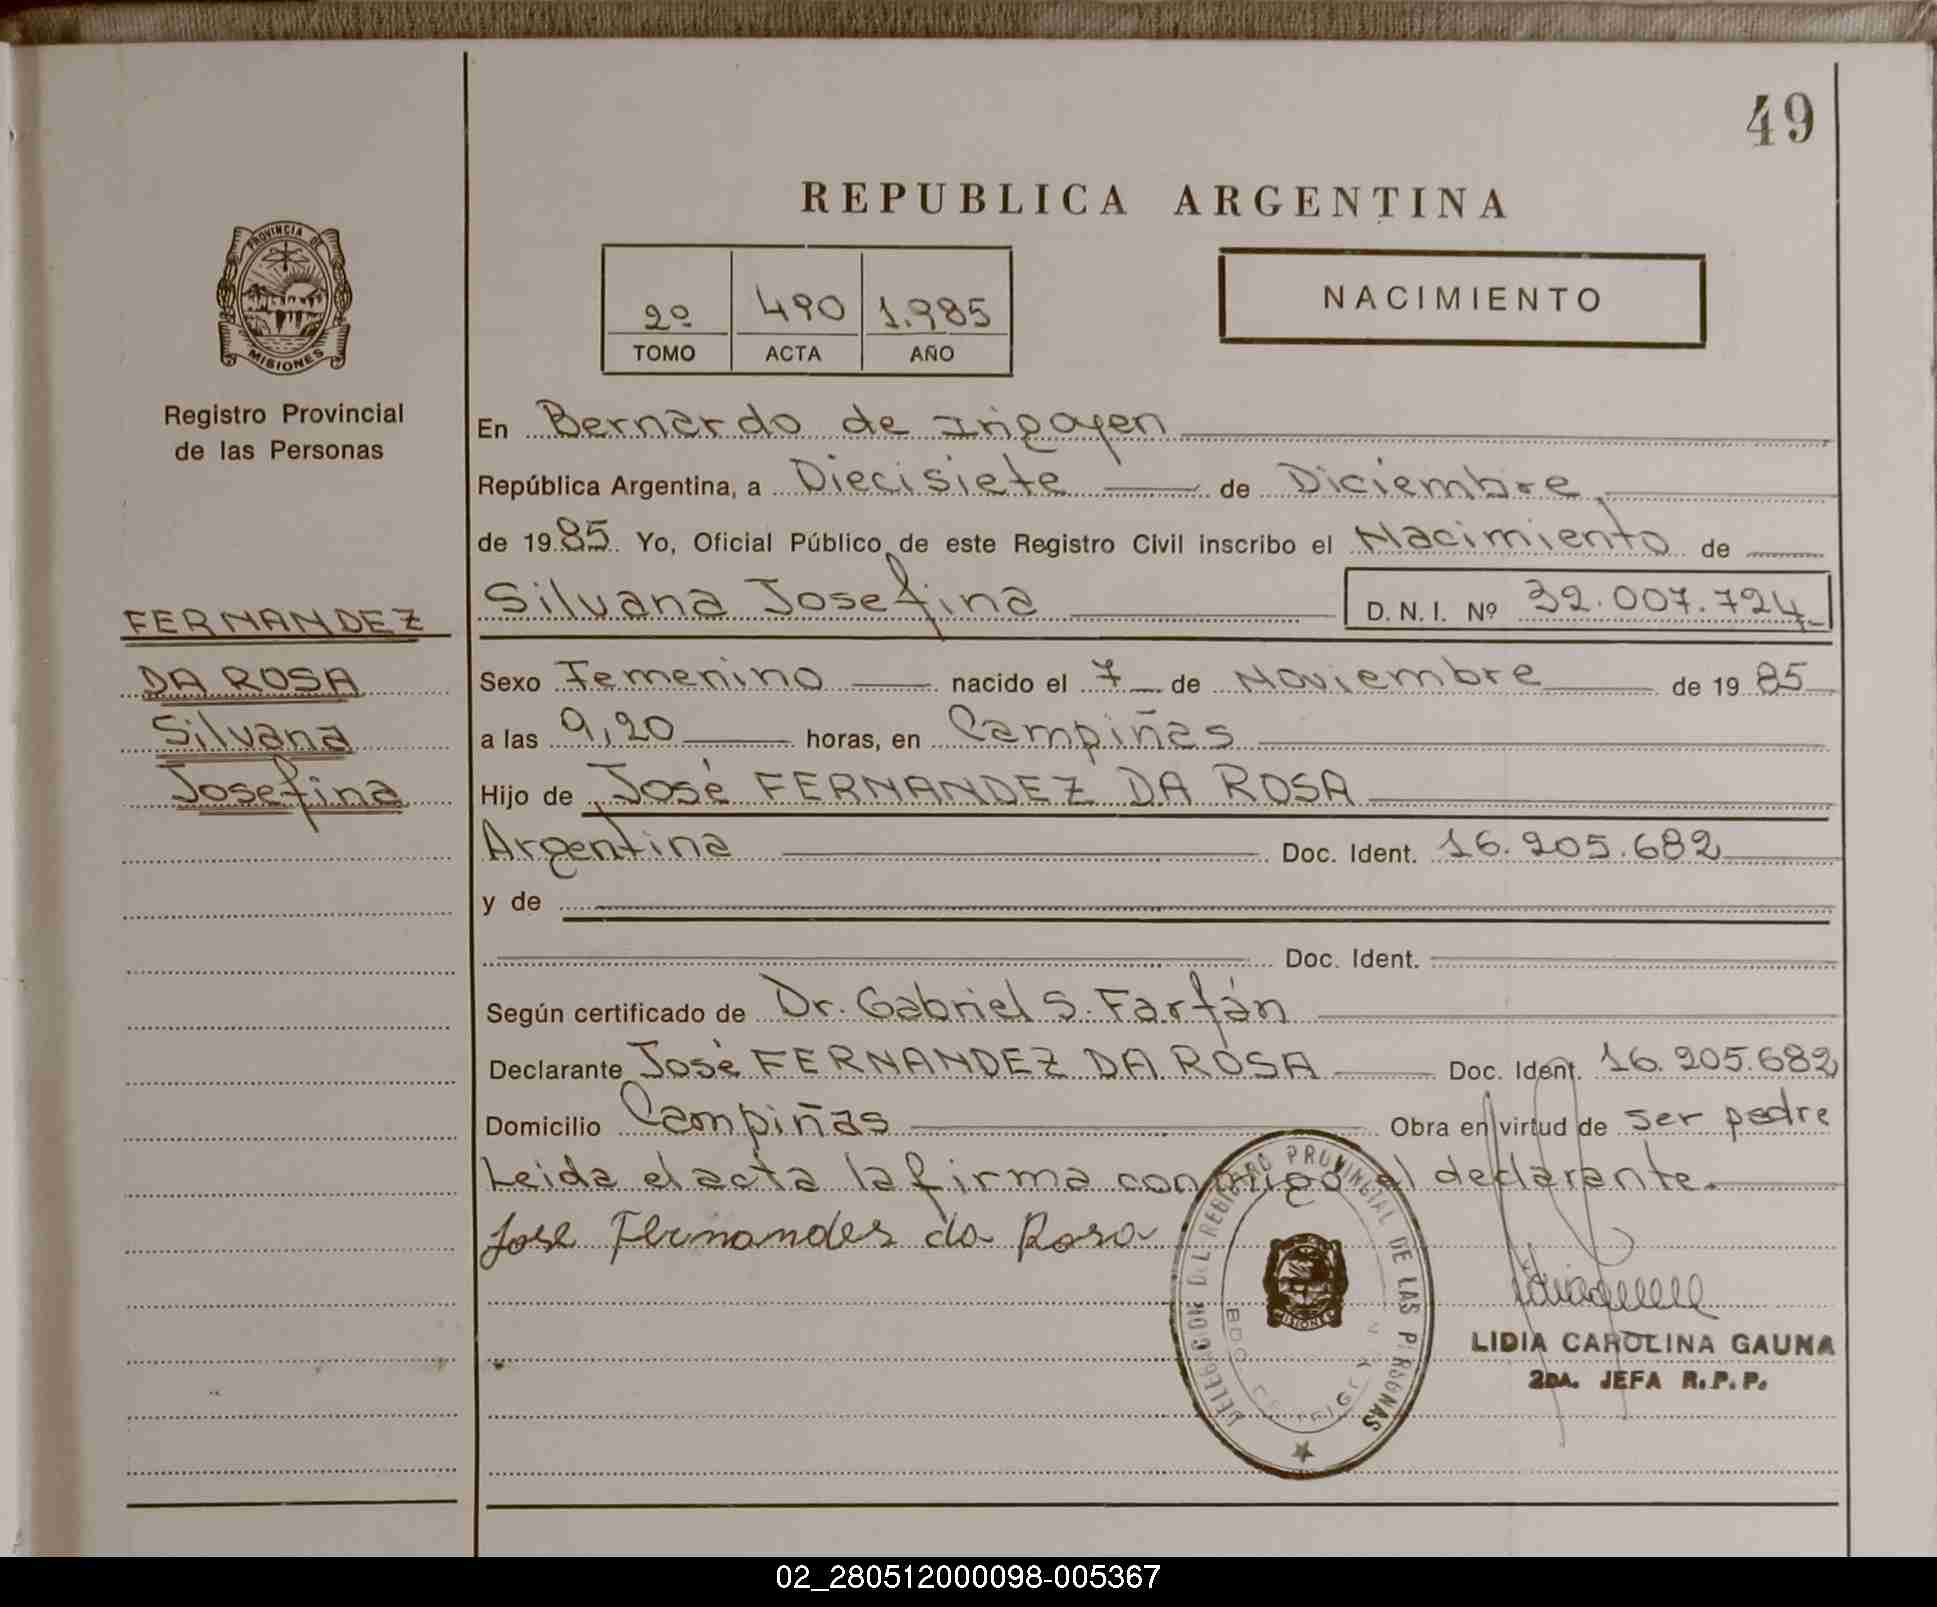 49
REPUBLICA ARGENTINA
PROVINCIA DE
MISIONES
Registro Provincial
de las Personas
2º 490 1.985
TOMO ACTA AÑO
NACIMIENTO
En Bernardo de Irigoyen
República Argentina, a Diecisiete de Diciembre
de 1985 Yo, Oficial Público de este Registro Civil inscribo el Nacimiento de
Silvana Josefina D.N.I. Nº 32.007.724
FERNANDEZ
DA ROSA
Silvana
Josefina
Sexo Femenino nacido el 7 de Noviembre de 1985
a las 9,20 horas, en Campiñas
Hijo de José FERNANDEZ DA ROSA
Argentina Doc. Ident. 16.205.682
y de
Doc. Ident.
Según certificado de Dr. Gabriel S. Farfán
Declarante José FERNANDEZ DA ROSA Doc. Ident. 16.205.682
Domicilio Campiñas Obra en virtud de ser padre
Leida el acta la firma conmigo el declarante.
Jose Fernandes da Rosa
DELEGACION DEL REGISTRO PROVINCIAL DE LAS PERSONAS
MISIONES
LIDIA CAROLINA GAUNA
2DA. JEFA R.P.P.
02_280512000098-005367